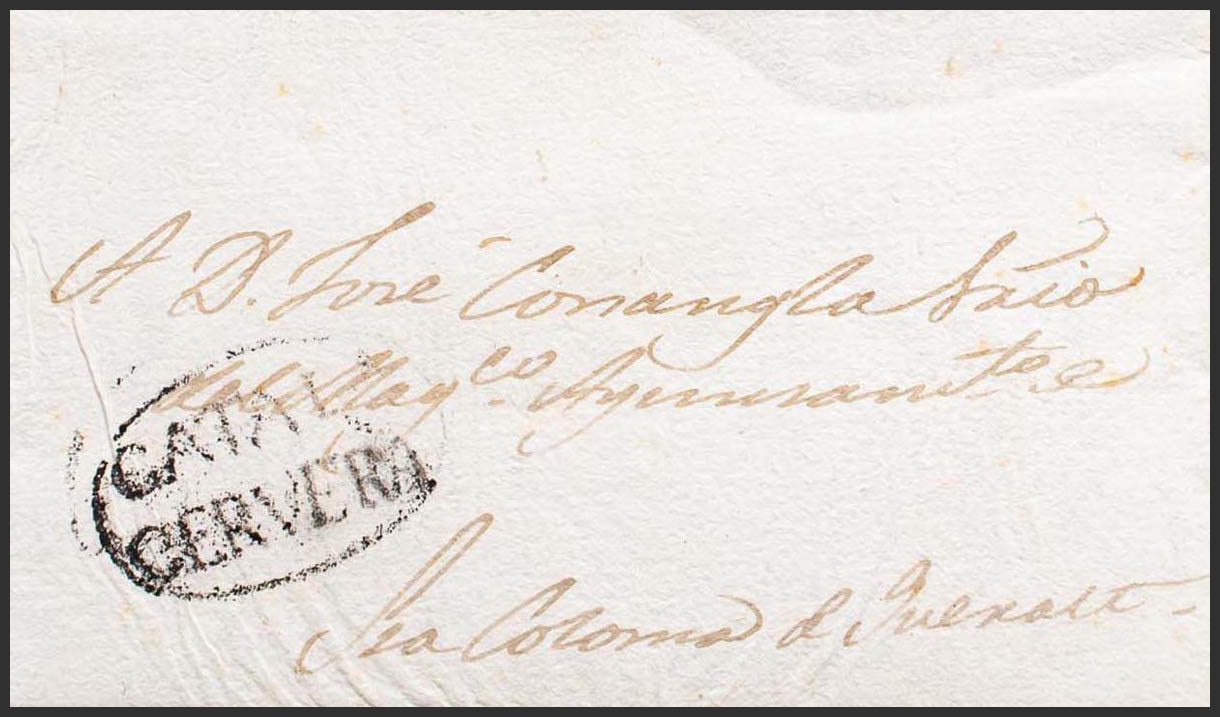 A D. José Conangla Srio
del Magco. Ayunram.te d
CATAL
CERVERA
Sta Coloma d Queralt.